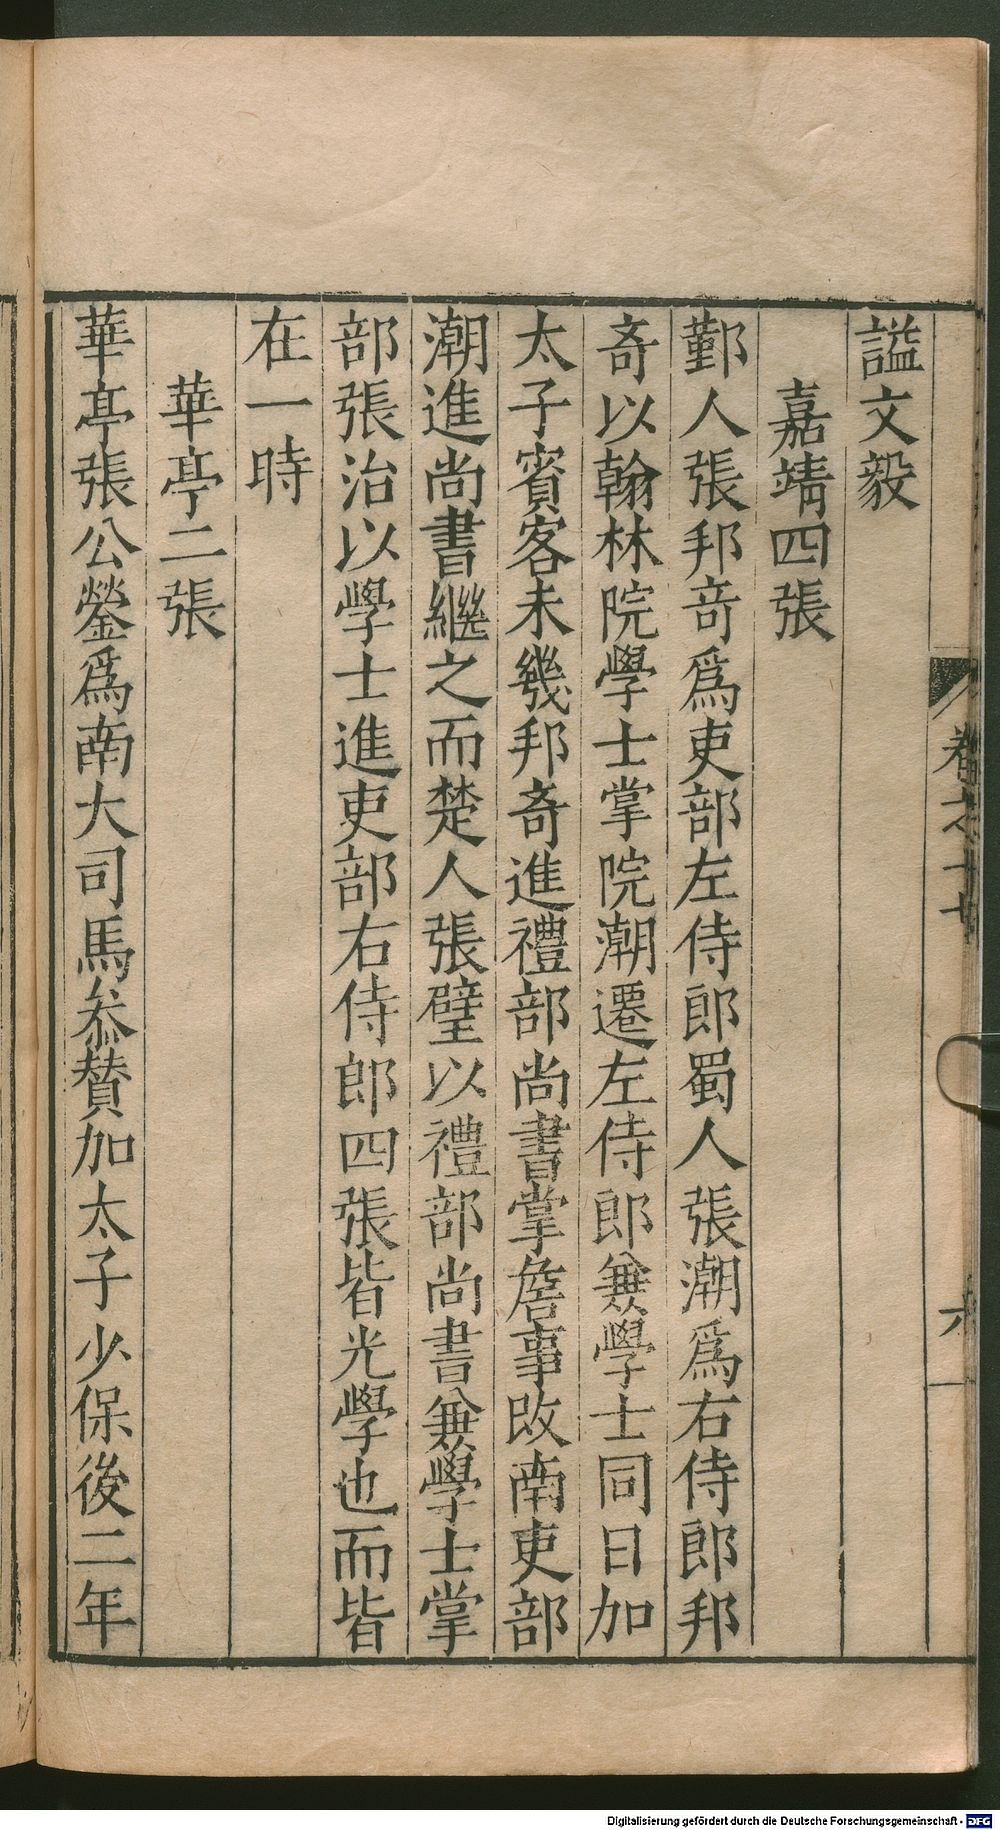 謚文毅
嘉靖四張
鄞人張邦竒爲吏部左侍郎蜀人張潮爲右侍郎邦
竒以翰林院學士掌院潮遷左侍郎兼學士同日加
太子賓客未幾邦竒進禮部尚書掌詹事改南吏部
潮進尚書繼之而楚人張璧以禮部尚書兼學士掌
部張治以學士進吏部右侍郎四張皆光學也而皆
在一時
華亭二張
華亭張公鎣爲南大司馬叅贊加太子少保後二年
卷之十七
六
Digitalisierung gefördert durch die Deutsche Forschungsgemeinschaft - DFG